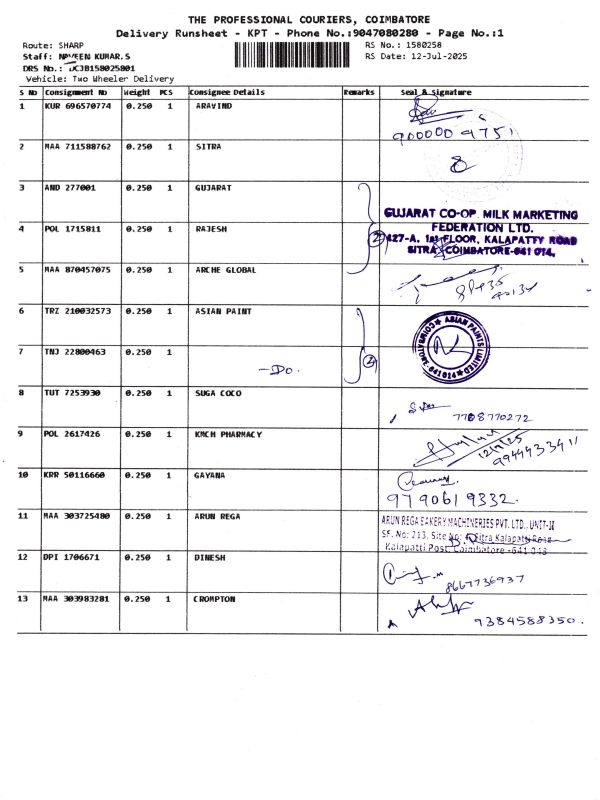 THE PROFESSIONAL COURIERS, COIMBATORE
Delivery Runsheet - KPT - Phone No.:9047080280 - Page No.:1
Route: SHARP
RS No.: 1580258
Staff: NAVEEN KUMAR.S
RS Date: 12-Jul-2025
DRS No.: DCJB158025801
Vehicle: Two Wheeler Delivery
S No Consignment No Weight PCS Consignee Details Remarks Seal & Signature
1 KUR 696570774 0.250 1 ARAVIND
9000009751
2 MAA 711588762 0.250 1 SITRA
8
3 AND 277001 0.250 1 GUJARAT
GUJARAT CO-OP. MILK MARKETING
FEDERATION LTD.
4 POL 1715811 0.250 1 RAJESH
2 427-A, 1st FLOOR, KALAPATTY ROAD
SITRA, COIMBATORE-641 014.
5 MAA 870457075 0.250 1 ARCHE GLOBAL
6 TRZ 210032573 0.250 1 ASIAN PAINT
ASIAN PAINTS LIMITED
COIMBATORE 641014
7 TNJ 22800463 0.250 1
-Do. 2
8 TUT 7253930 0.250 1 SUGA COCO
7708770272
9 POL 2617426 0.250 1 KMCH PHARMACY
12/7/25
9944933411
10 KRR 50116660 0.250 1 GAYANA
9790619332.
11 MAA 303725480 0.250 1 ARUN REGA
ARUN REGA BAKERY MACHINERIES PVT. LTD., UNIT-II
SF. No: 213, Site No: Sitra Kalapatti Road
Kalapatti Post, Coimbatore -641 048
12 DPI 1706671 0.250 1 DINESH
8667736937
13 MAA 303983281 0.250 1 CROMPTON
9384588350.